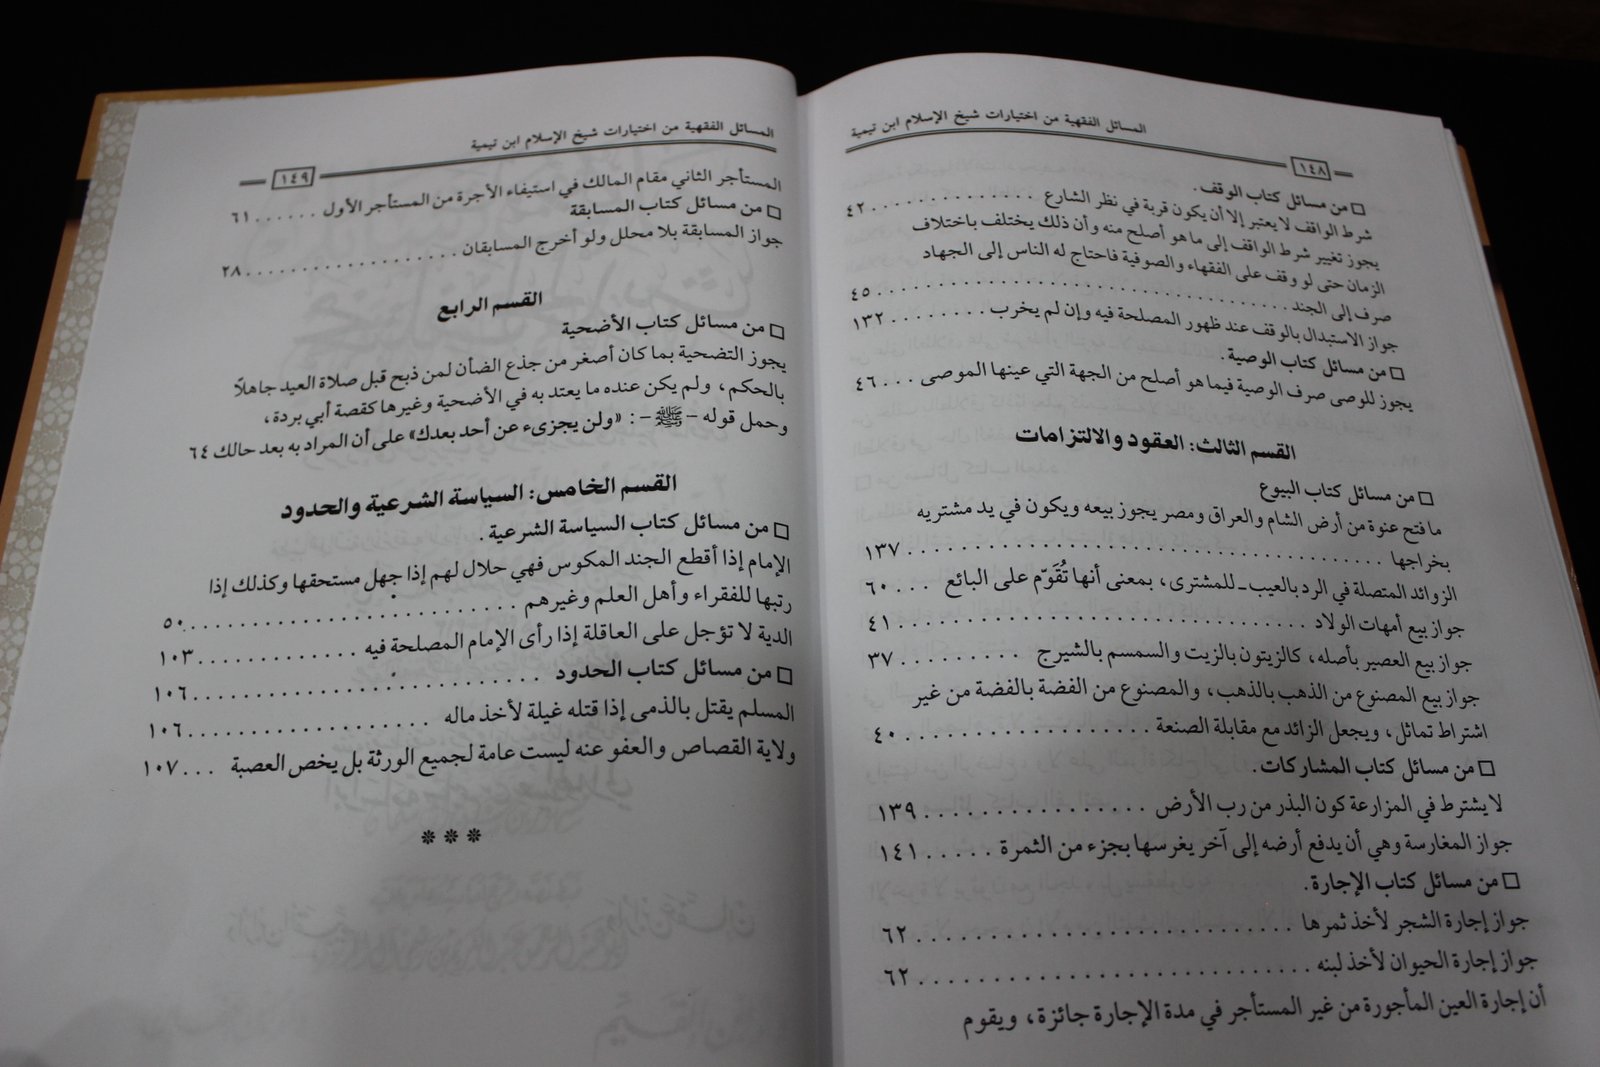 المسائل الفقهية من اختيارات شيخ الإسلام ابن تيمية
١٤٨
□ من مسائل كتاب الوقف.
شرط الواقف لا يعتبر إلا أن يكون قربة في نظر الشارع . . . . . . . . . . . . . ٤٢
يجوز تغيير شرط الواقف إلى ما هو أصلح منه وأن ذلك يختلف باختلاف
الزمان حتى لو وقف على الفقهاء والصوفية فاحتاج له الناس إلى الجهاد
صرف إلى الجند . . . . . . . . . . . . . . . . . . . . . . . . . . . . . . ٤٥
جواز الاستبدال بالوقف عند ظهور المصلحة فيه وإن لم يخرب . . . . . . . . ١٣٢
□ من مسائل كتاب الوصية.
يجوز للوصى صرف الوصية فيما هو أصلح من الجهة التي عينها الموصى . . . ٤٦
القسم الثالث: العقود والالتزامات
□ من مسائل كتاب البيوع
ما فتح عنوة من أرض الشام والعراق ومصر يجوز بيعه ويكون في يد مشتريه
بخراجها . . . . . . . . . . . . . . . . . . . . . . . . . . . . . . . . . . ١٣٧
الزوائد المتصلة في الرد بالعيب ـ للمشترى، بمعنى أنها تُقَوّم على البائع . . . ٦٠
جواز بيع أمهات الولاد . . . . . . . . . . . . . . . . . . . . . . . . . . . . ٤١
جواز بيع العصير بأصله، كالزيتون بالزيت والسمسم بالشيرج . . . . . . . . . ٣٧
جواز بيع المصنوع من الذهب بالذهب، والمصنوع من الفضة بالفضة من غير
اشتراط تماثل، ويجعل الزائد مع مقابلة الصنعة . . . . . . . . . . . . . . . . . ٤٠
□ من مسائل كتاب المشاركات.
لا يشترط في المزارعة كون البذر من رب الأرض . . . . . . . . . . . . . . . ١٣٩
جواز المغارسة وهي أن يدفع أرضه إلى آخر يغرسها بجزء من الثمرة . . . . . ١٤١
□ من مسائل كتاب الإجارة.
جواز إجارة الشجر لأخذ ثمرها . . . . . . . . . . . . . . . . . . . . . . . . . ٦٢
جواز إجارة الحيوان لأخذ لبنه . . . . . . . . . . . . . . . . . . . . . . . . . ٦٢
أن إجارة العين المأجورة من غير المستأجر في مدة الإجارة جائزة، ويقوم
المسائل الفقهية من اختيارات شيخ الإسلام ابن تيمية
١٤٩
المستأجر الثاني مقام المالك في استيفاء الأجرة من المستأجر الأول . . . . . . ٦١
□ من مسائل كتاب المسابقة
جواز المسابقة بلا محلل ولو أخرج المسابقان . . . . . . . . . . . . . . . . . . ٢٨
القسم الرابع
□ من مسائل كتاب الأضحية
يجوز التضحية بما كان أصغر من جذع الضأن لمن ذبح قبل صلاة العيد جاهلاً
بالحكم، ولم يكن عنده ما يعتد به في الأضحية وغيرها كقصة أبي بردة،
وحمل قوله – ﷺ –: «ولن يجزىء عن أحد بعدك» على أن المراد به بعد حالك ٦٤
القسم الخامس: السياسة الشرعية والحدود
□ من مسائل كتاب السياسة الشرعية.
الإمام إذا أقطع الجند المكوس فهي حلال لهم إذا جهل مستحقها وكذلك إذا
رتبها للفقراء وأهل العلم وغيرهم . . . . . . . . . . . . . . . . . . . . . . . . ٥٠
الدية لا تؤجل على العاقلة إذا رأى الإمام المصلحة فيه . . . . . . . . . . . . ١٠٣
□ من مسائل كتاب الحدود . . . . . . . . . . . . . . . . . . . . . . . . . . ١٠٦
المسلم يقتل بالذمى إذا قتله غيلة لأخذ ماله . . . . . . . . . . . . . . . . . . ١٠٦
ولاية القصاص والعفو عنه ليست عامة لجميع الورثة بل يخص العصبة . . . ١٠٧
* * *